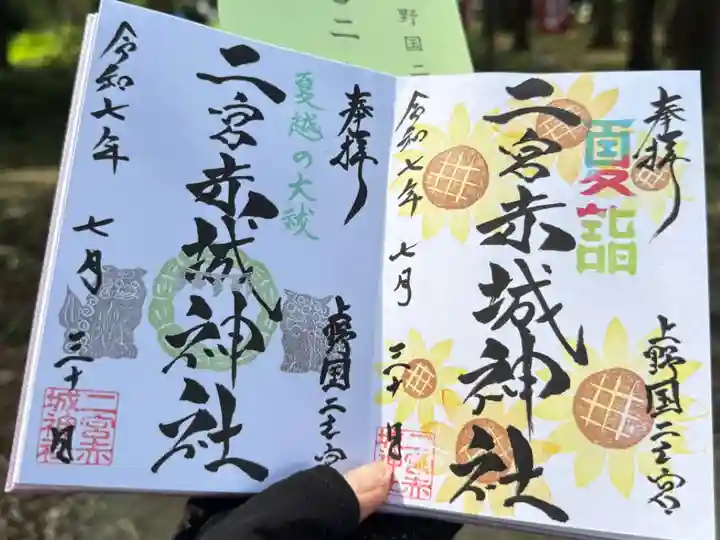 野国二
二
奉拝
夏詣
二宮赤城神社
上野国二之宮
令和七年
七月
三十
二宮赤
城神
奉拝
夏越の大祓
二宮赤城神社
上野国二之宮
令和七年
七月
三十
二宮赤
城神社